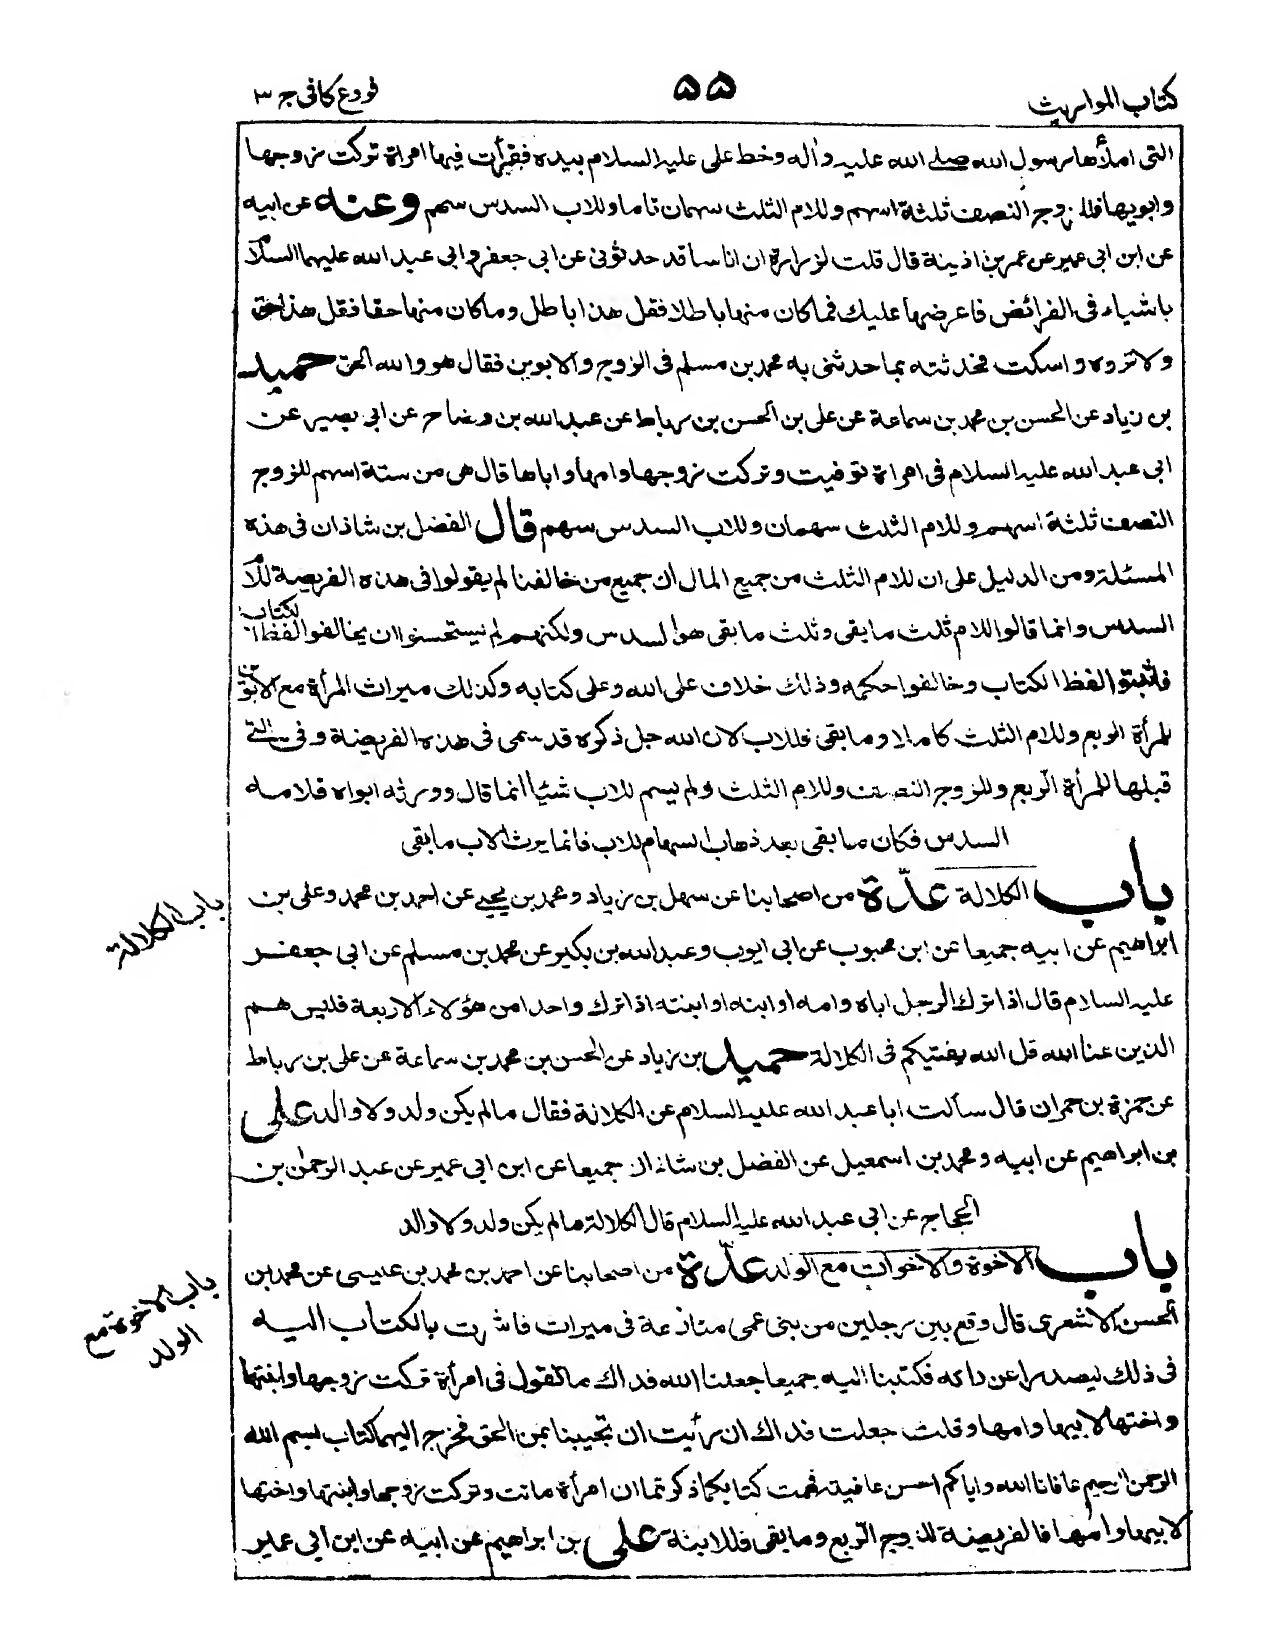 كتاب المواريث
۵۵
فروع كافى ج ٣
التى املأها رسول الله صلى الله عليه واله وخط على عليه السلام بيده فقرأت فيها امراة تركت زوجها
وابويها فللزوج النصف ثلثة اسهم وللام الثلث سهمان تاما وللاب السدس سهم وعنه عن ابيه
عن ابن ابى عمير عن عمر بن اذينة قال قلت لزرارة ان اناسا قد حدثونى عن ابى جعفر وابى عبد الله عليهما السلام
باشياء فى الفرائض فاعرضها عليك فما كان منها باطلا فقل هذا باطل وما كان منها حقا فقل هذا حق
ولا تروه واسكت فحدثته بما حدثنى به محمد بن مسلم فى الزوج والابوين فقال هو والله الحق حميد
بن زياد عن الحسن بن محمد بن سماعة عن على بن الحسن بن رباط عن عبد الله بن وضاح عن ابى بصير عن
ابى عبد الله عليه السلام فى امراة توفيت وتركت زوجها وامها واباها قال هى من ستة اسهم للزوج
النصف ثلثة اسهم وللام الثلث سهمان وللاب السدس سهم قال الفضل بن شاذان فى هذه
المسئلة ومن الدليل على ان للام الثلث من جميع المال ان جميع من خالفنا لم يقولوا فى هذه الفريضة للام
السدس وانما قالوا للام ثلث ما بقى وثلث ما بقى هو السدس ولكنهم لم يستحسنوا ان يخالفوا لفظ الكتاب
فاثبتوا لفظ الكتاب وخالفوا حكمه وذلك خلاف على الله وعلى كتابه وكذلك ميراث المرأة مع الابوين
للمرأة الربع وللام الثلث كاملا وما بقى فللاب لان الله جل ذكره قد سمى فى هذه الفريضة وفى التى
قبلها للمرأة الربع وللزوج النصف وللام الثلث ولم يسم للاب شيأ انما قال وورثه ابواه فلامه
السدس فكان ما بقى بعد ذهاب السهام للاب فانما يرث الاب ما بقى
باب الكلالة عدّة من اصحابنا عن سهل بن زياد ومحمد بن يحيى عن احمد بن محمد وعلى بن
ابراهيم عن ابيه جميعا عن ابن محبوب عن ابى ايوب وعبد الله بن بكير عن محمد بن مسلم عن ابى جعفر
عليه السلام قال اذا ترك الرجل اباه وامه او ابنه او ابنته اذا ترك واحدا من هؤلاء الاربعة فليس هم
الذين عنا الله قل الله يفتيكم فى الكلالة حميد بن زياد عن الحسن بن محمد بن سماعة عن على بن رباط
عن حمزة بن حمران قال سألت ابا عبد الله عليه السلام عن الكلالة فقال ما لم يكن ولد ولا والد على
بن ابراهيم عن ابيه ومحمد بن اسمعيل عن الفضل بن شاذان جميعا عن ابن ابى عمير عن عبد الرحمن بن
الحجاج عن ابى عبد الله عليه السلام قال الكلالة ما لم يكن ولد ولا والد
باب الاخوة والاخوات مع الولد عدّة من اصحابنا عن احمد بن محمد بن عيسى عن محمد بن
الحسن الاشعرى قال وقع بين رجلين من بنى عمى منازعة فى ميراث فاشرت بالكتاب اليه
فى ذلك ليصدرا عن رايه فكتبنا اليه جميعا جعلنا الله فداك ما تقول فى امرأة تركت زوجها وابنتها
واختها لابيها وامها وقلت جعلت فداك ان رأيت ان تجيبنا بمر الحق فخرج اليهما كتاب بسم الله
الرحمن الرحيم عافانا الله واياكم احسن عافية فهمت كتابكما ذكرتما ان امرأة ماتت وتركت زوجها وابنتها واختها
لابيها وامها فالفريضة للزوج الربع وما بقى فللابنة على بن ابراهيم عن ابيه عن ابن ابى عمير
باب الكلالة
باب الاخوة مع
الولد